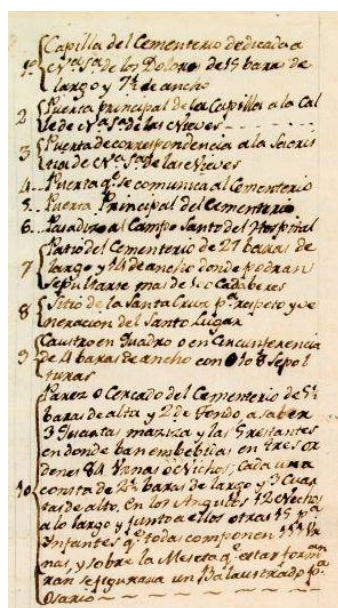 Capilla del Cementerio dedicada a
1ª N.ª S.ª de los Dolores de 15 baras de
largo y 7½ de ancho
2 Puerta principal de la Capilla a la Cal
le de N.ª S.ª de las Nieves
3 Puerta de correspondencia a la Sacris
tia de N.ª S.ª de las Nieves
4.. Puerta q.e se comunica al Cementerio
5.. Puerta Principal del Cementerio
6.. Pasadizo al Campo Santo del Hospital
Patio del Cementerio de 27 baras de
7 largo y 14 de ancho donde podran
sepultarse mas de 400 Cadaberes
8 Sitio de la Santa Cruz p.ª respeto y ve
neracion del Santo Lugar
Caustro en Quadro o en Circunferencia
9 de 4 baras de ancho con 108 Sepol
turas
Parez o Cercado del Cementerio de 5½
baras de alta y 2 de fondo a saber
3 quartas maziza y las 5 restantes
en donde ban embebidas en tres or
denes 84 Urnas o Nichos; Cada una
10 consta de 2½ baras de largo y 3 Cuar
tas de alto. En los Angulos 12 Nichos
a lo largo y junto a ellos otras 15 p.ª
Ynfantes q.e todas componen 111 Ur
nas, y sobre la Meseta q.e estar form
ran se figurara un Balaustrado p.ª
Osario